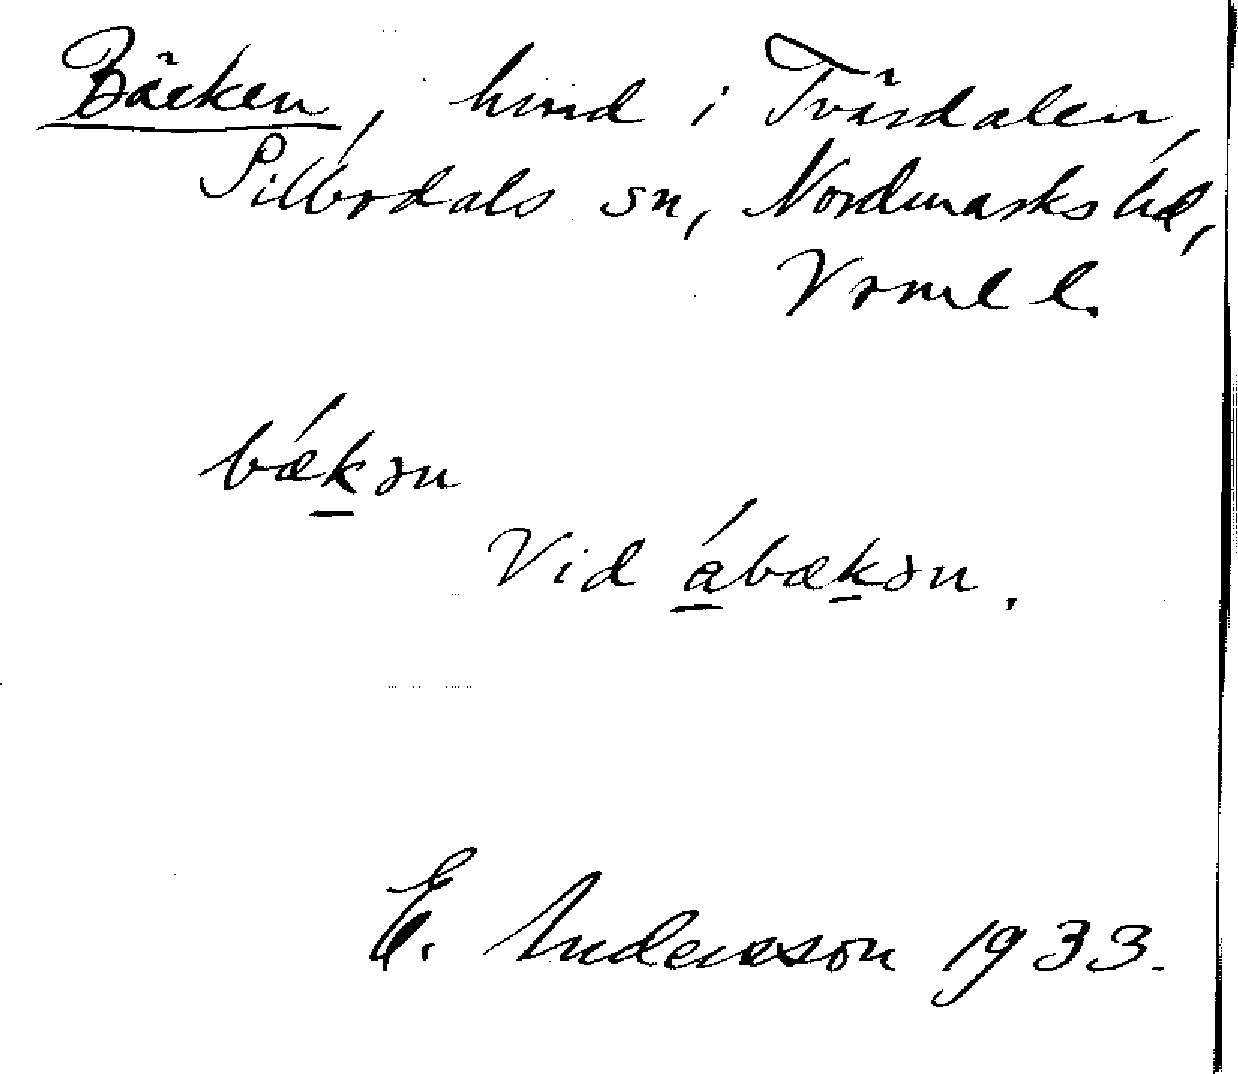 Bäcken, hmd i Tvärdalen,
Silbodals sn, Nordmarks hd,
Vrml l.
bǽk̲ən
Vid á̲bæk̲ən.
E. Andersson 1933.